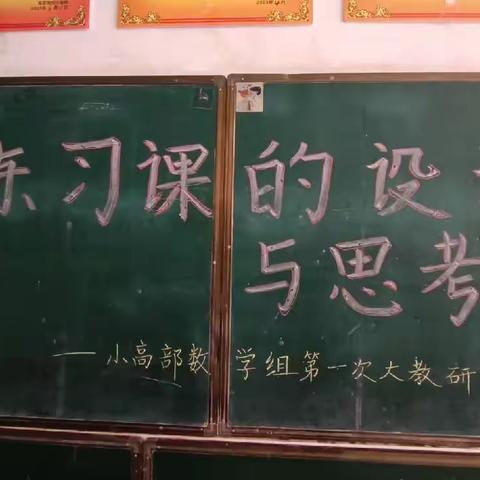 练习课的设
与思考
——小高部数学组第一次大教研